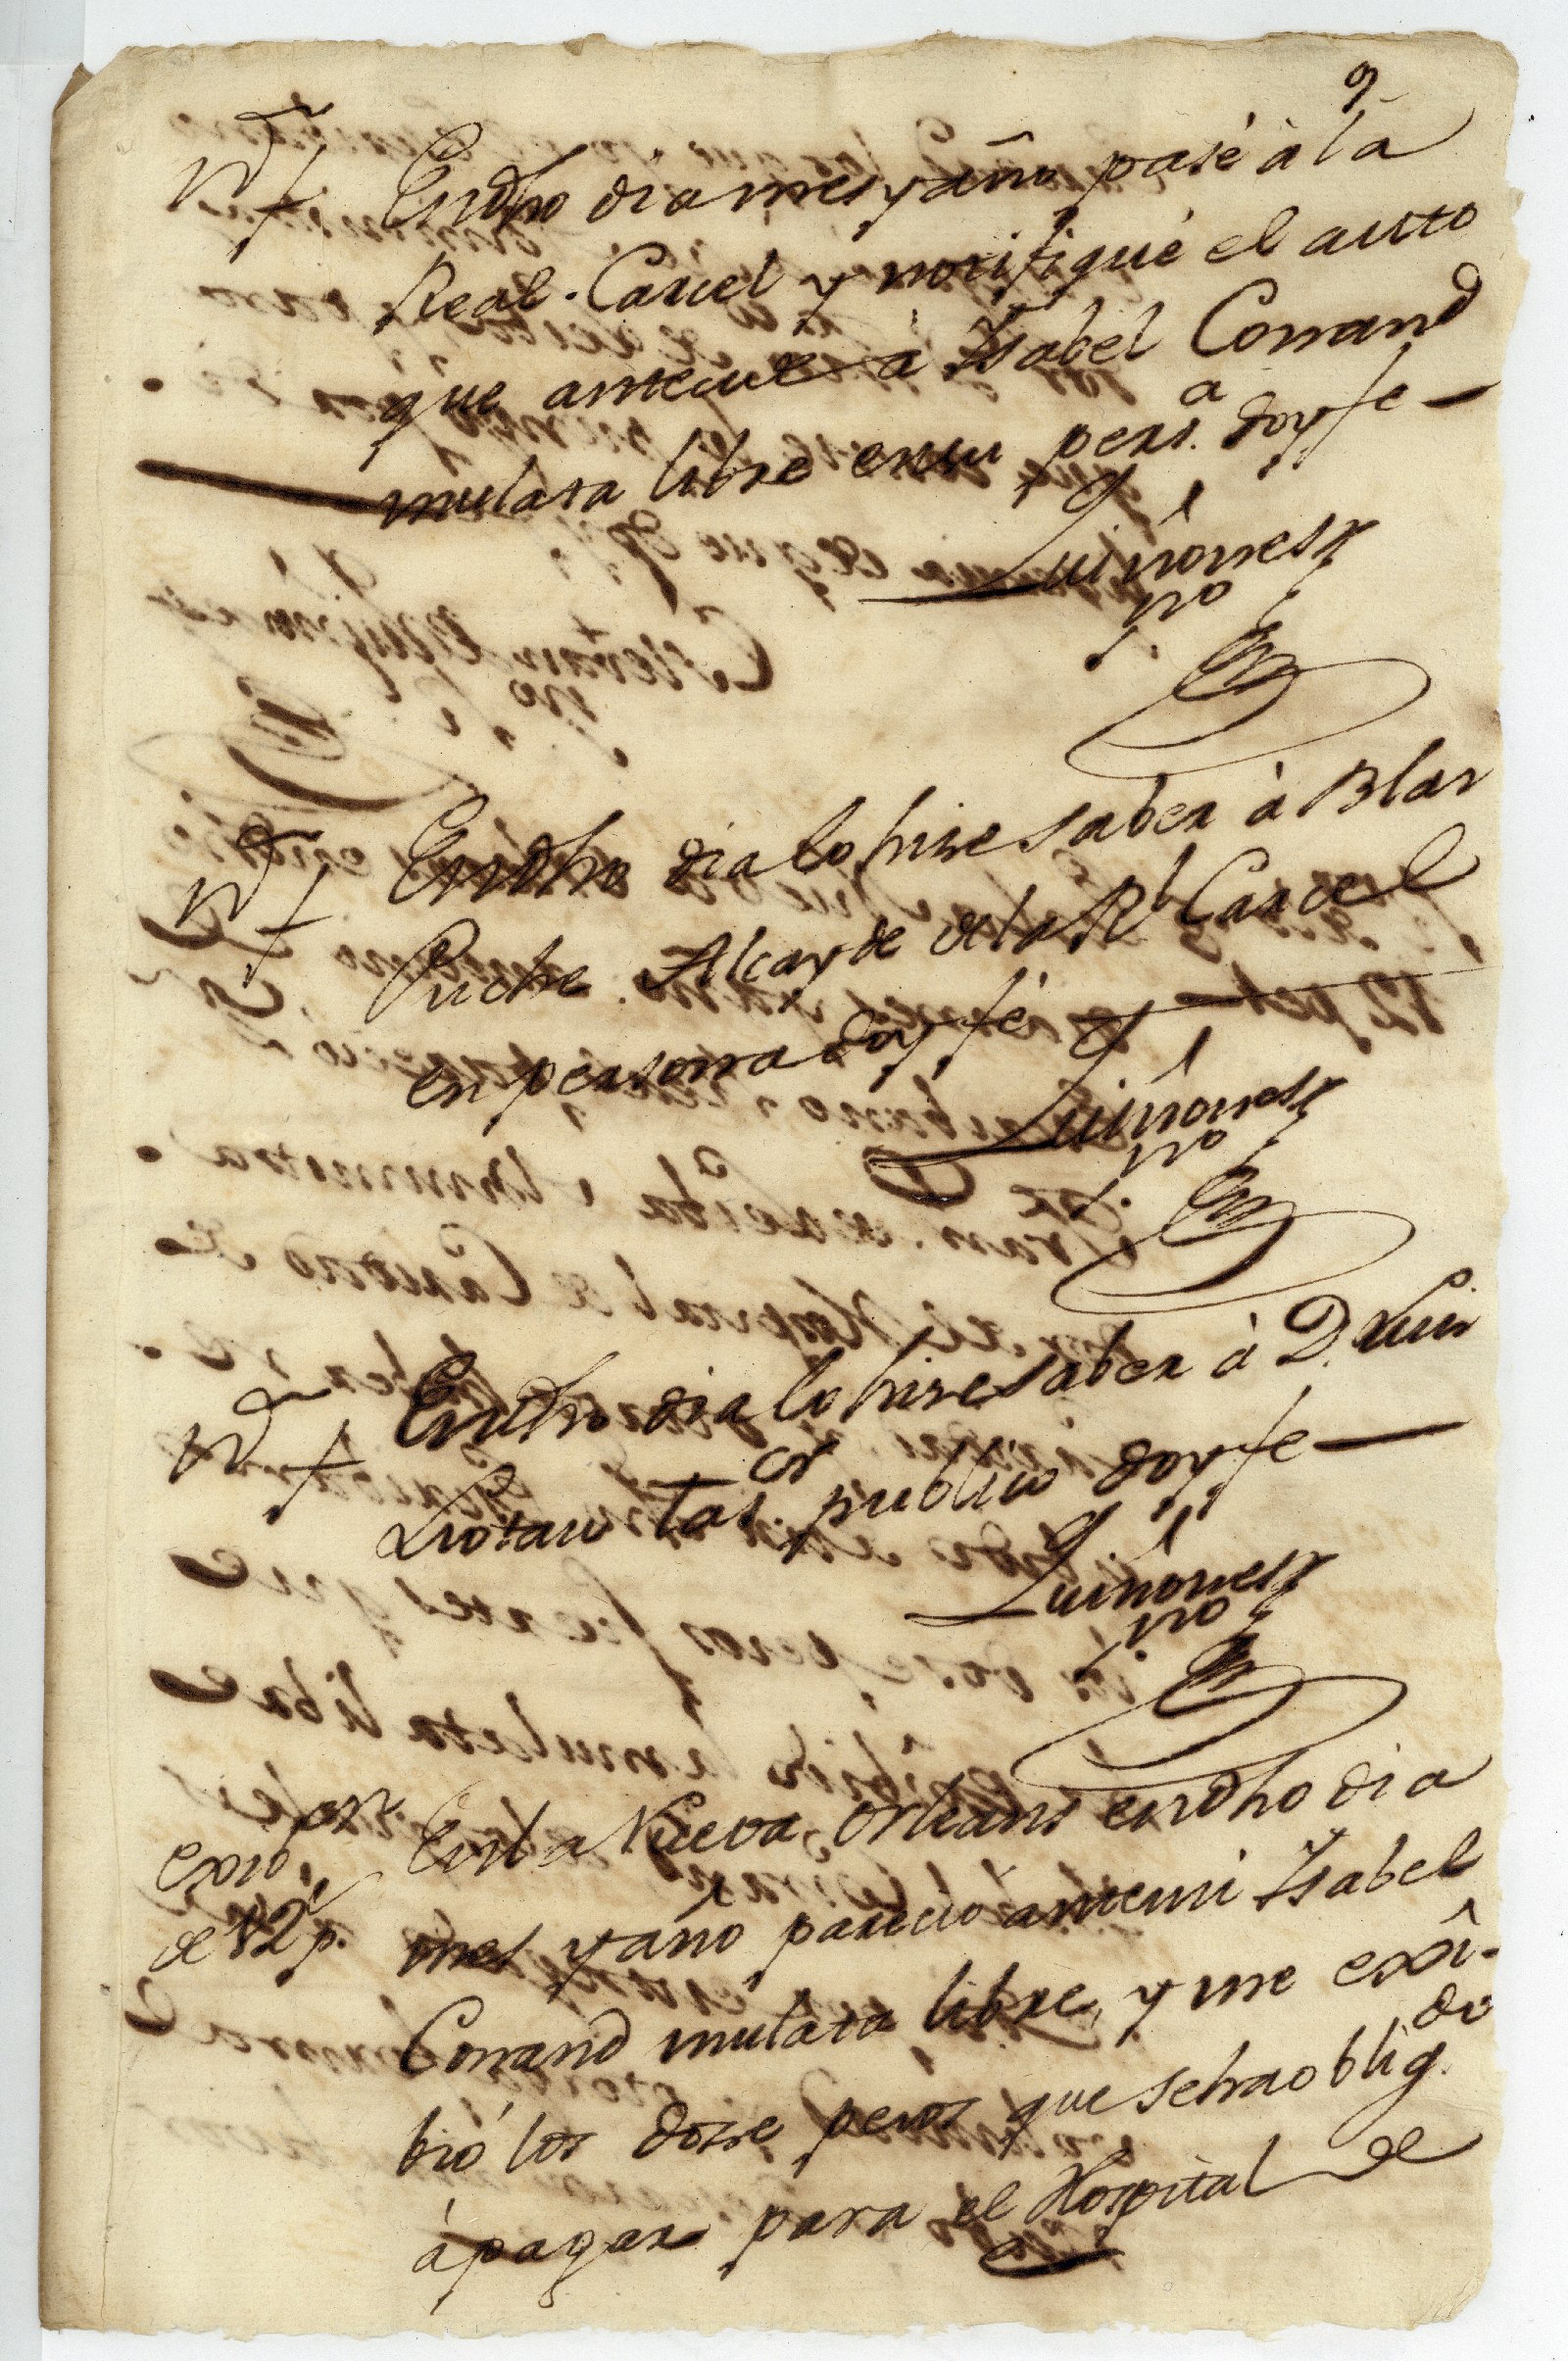 9
Not En dho dia mes y año pasé à la
Real. Carcel y notifiqué el auto
que antecede a Ysabel Conrand
mulata libre en su persa. doy fe
Quiñones
no
En dho dia lo hise saber à Blas
Puche Alcayde de la Rl Carcel
en persona doy fé
Quiñones
no
En dho dia lo hise saber à D. Luis
Liotau tasor. publico doy fe
Quiñones
no
En la Nueva Orleans en dho dia
exion
de 12 ps.
mes y año parecio ante mi Ysabel
Conrand mulata libre, y me exî-
bió los dosse pesos que se ha obligdo
à pagar para el Hospital de